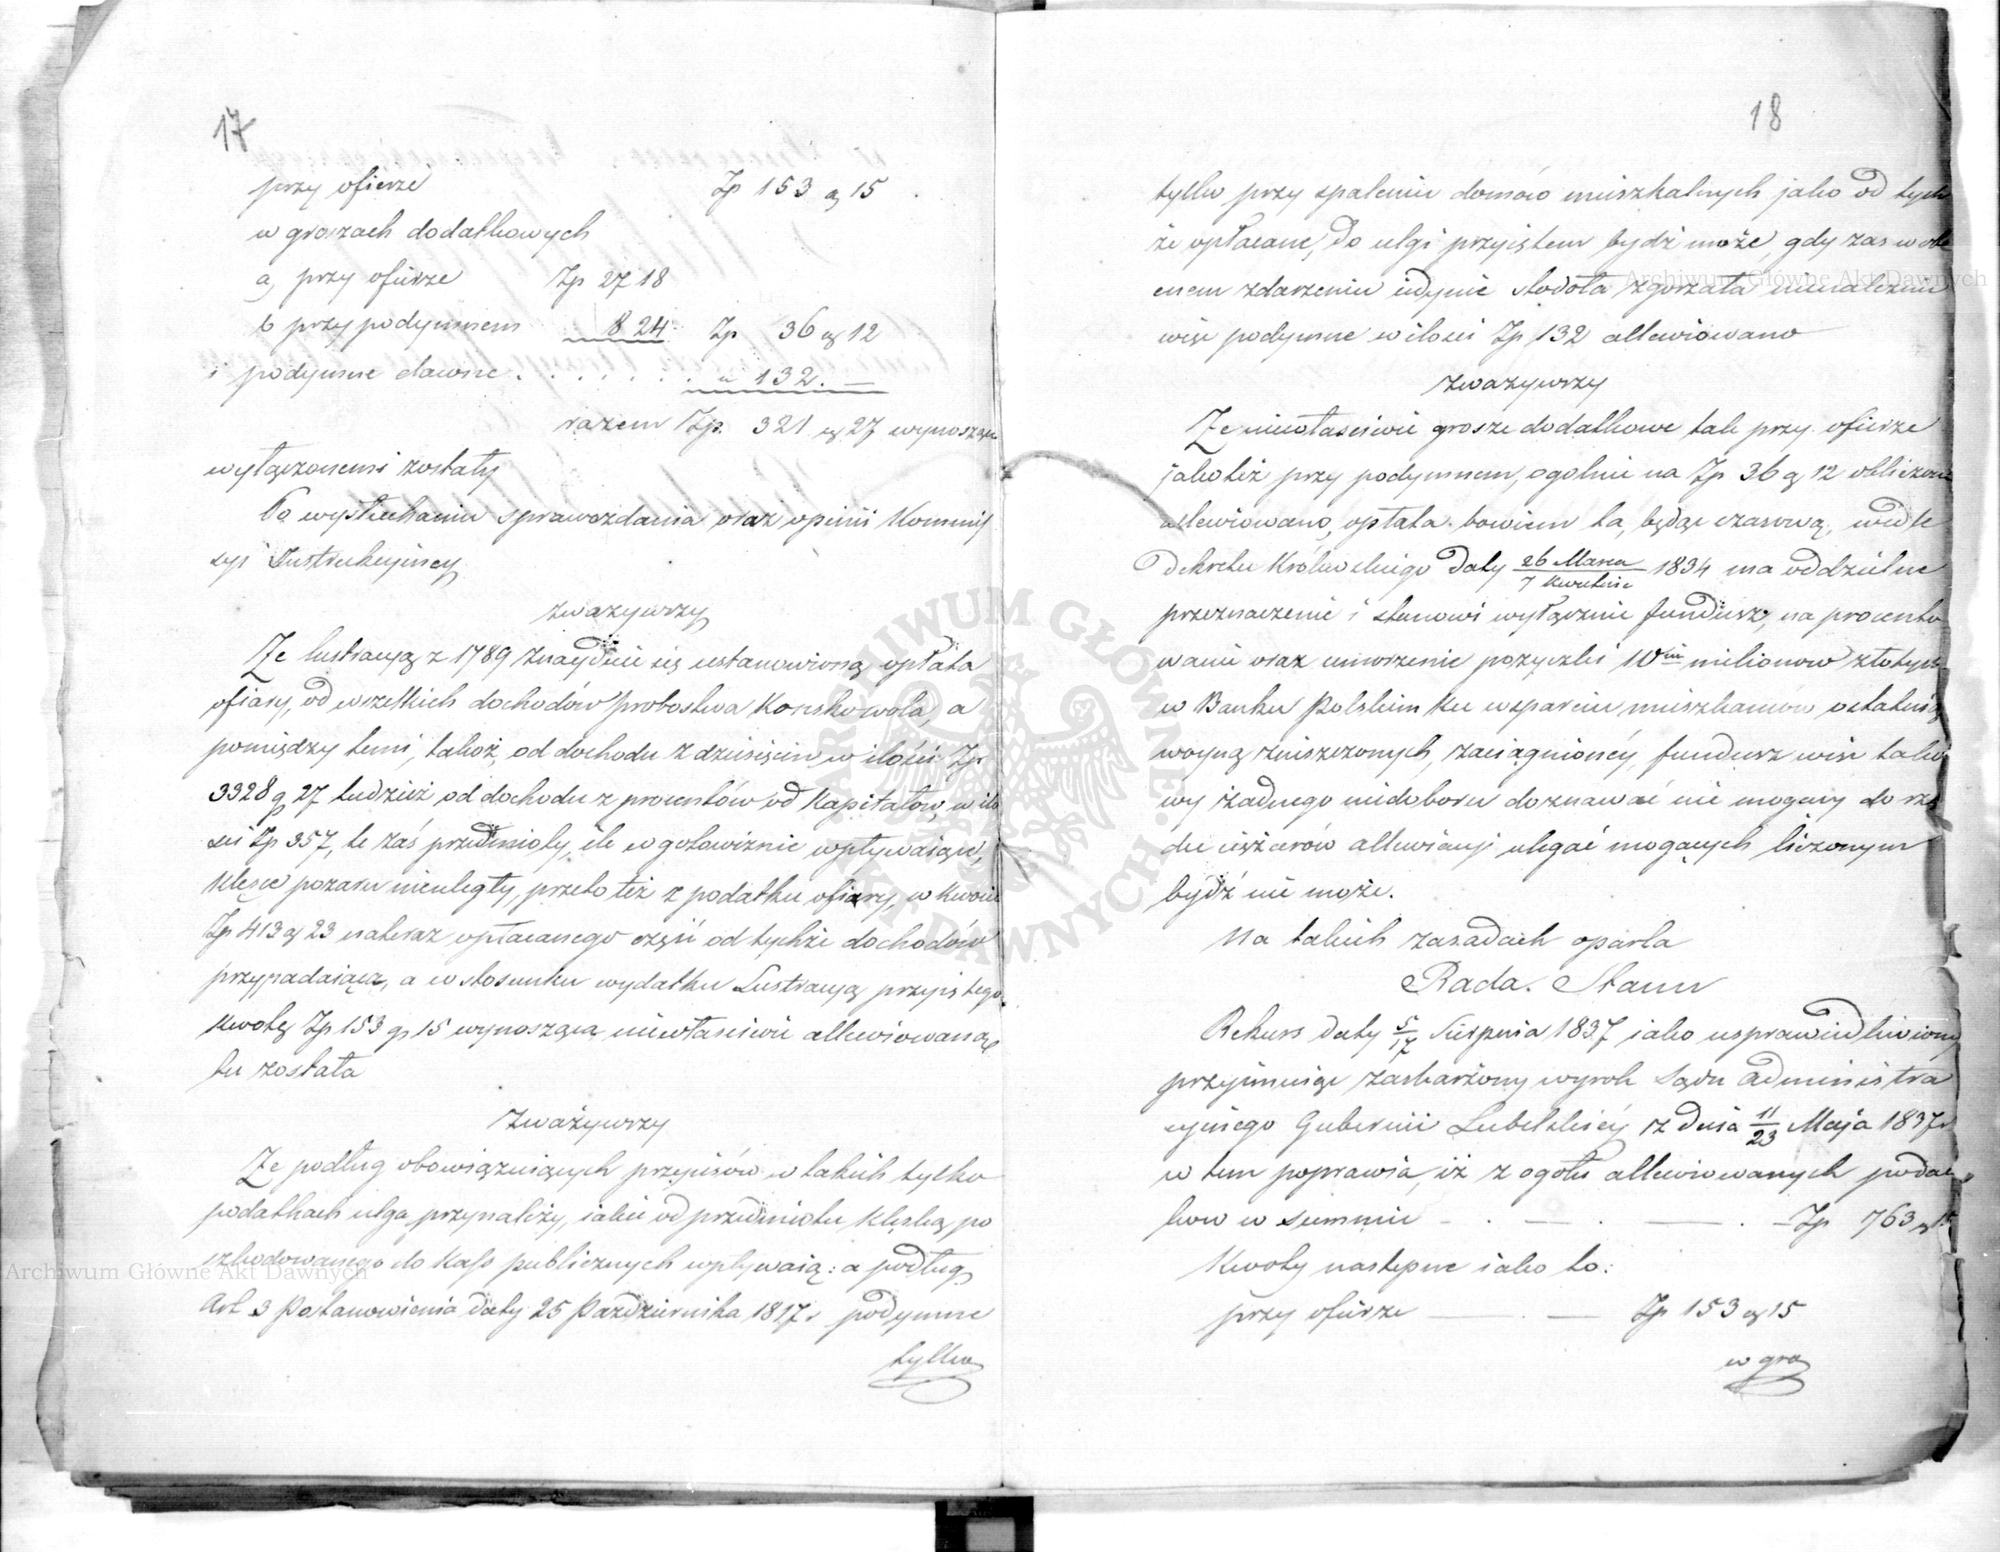 17
przy ofierze Zp 153 g 15
w groszach dodatkowych
a, przy ofierze Zp 27 18
b przy podymnem " 8 24 Zp 36 g 12
i podymne dawne . . . . . . " 132. —
razem Zp. 321 g 27 wynoszące
wyłączonemi zostały
Po wysłuchaniu sprawozdania oraz opinii Kommis
syi Instrukcyiney
zważywszy
Że lustracyą z 1789 znayduie się ustanowioną opłata
ofiary, od wszelkich dochodów probostwa Konskowola, a
pomiędzy temi, takoż, od dochodu z dziesięcin w ilości Zp
3328 g 27 tudzież od dochodu z procentów od Kapitałów, w ilo
ści Zp 357, te zaś przedmioty, ile w gotowiznie wpływaiące,
klęsce pożaru nieuległy, przeto też z podatku ofiary, w kwocie
Zp 413 g 23 nateraz opłacanego część od tychże dochodów
przypadaiąca, a w stosunku wydatku Lustracyą przyiętego,
kwotę Zp 153 g 15 wynosząca niewłaściwie allewiowaną
tu została
Zważywszy
Że podług obowiązuiących przepisów w takich tylko
podatkach ulga przynależy, iakie od przedmiotu klęską po
szkodowanego do Kass publicznych wpływaią: a podług
Art. 3 Postanowienia daty 25 Października 1817 r podymne
tylko
18
tylko przy spaleniu domów mieszkalnych jako od tych
że opłacane, do ulgi przyiętem bydź może, gdy zaś w obe
cnem zdarzeniu iedynie stodoła zgorzała nienależnie
więc podymne w ilości Zp 132 allewiowano
zważywszy
Że niewłaściwie grosze dodatkowe tak przy ofierze
jakoteż przy podymnem, ogolnie na Zp 36 g 12 obliczone
allewiowano, opłata bowiem ta, będąc czasową, wedle
Dekretu Królewskiego Daty 26 Marca / 7 Kwietnia 1834 ma oddzielne
przeznaczenie i stanowi wyłącznie fundusz, na procento
wanie oraz umorzenie pożyczki 10ciu milionow złotych
w Banku Polskim ku wsparciu mieszkancow ostatnią
woyną zniszczonych, zaciągnioney, fundusz więc tako
wy żadnego niedoboru doznawać nie mogący do rzę
du ciężarów allewiacyi ulegać mogących liczonym
bydź nie może.
Na takich zasadach oparła
Rada Stanu
Rekurs daty 5/17 Sierpnia 1837 iako usprawiedliwiony
przyimuiąc zaskarżony wyrok Sądu Administra
cyinego Gubernii Lubelskiéy z dnia 11/23 Maja 1837 r
w tem poprawia, iż z ogołu allewiowanych podat
kow w summie — . — . — . — Zp 763 g 15
Kwoty nastepne iako to:
przy ofierze — . — Zp 153 g 15
w gro
Archiwum Główne Akt Dawnych
Archiwum Główne Akt Dawnych
ARCHIWUM GŁÓWNE AKT DAWNYCH